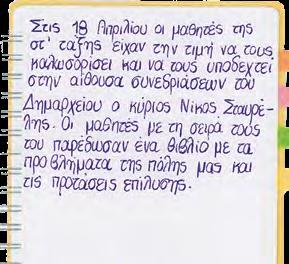 Στις 18 Απριλίου οι μαθητές της
στ' τάξης είχαν την τιμή να τους
καλωσορίσει και να τους υποδεχτεί
στην αίθουσα συνεδριάσεων του
Δημαρχείου ο κύριος Νίκος Σταυρέ-
λης. Οι μαθητές με τη σειρά τους
του παρέδωσαν ένα βιβλίο με τα
προβλήματα της πόλης μας και
τις προτάσεις επίλυσης.